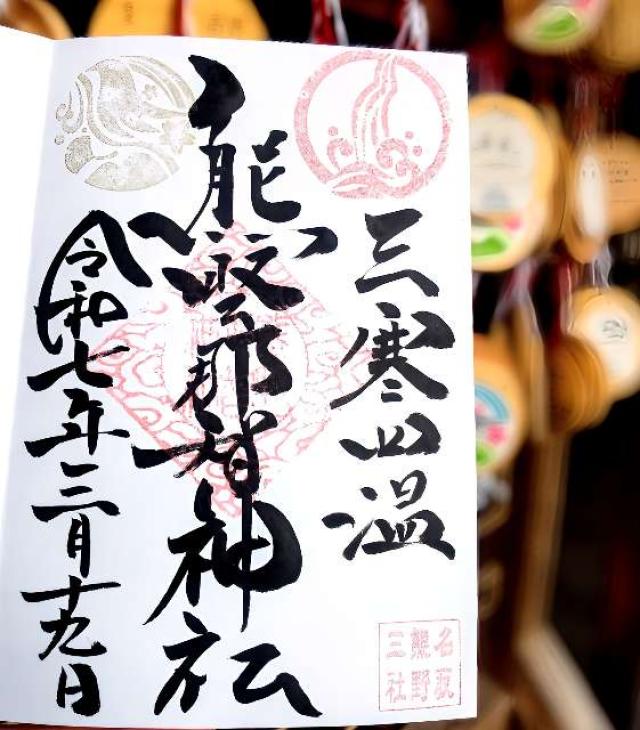 三寒四温
熊野那智神社
令和七年三月十九日
名取
熊野
三社